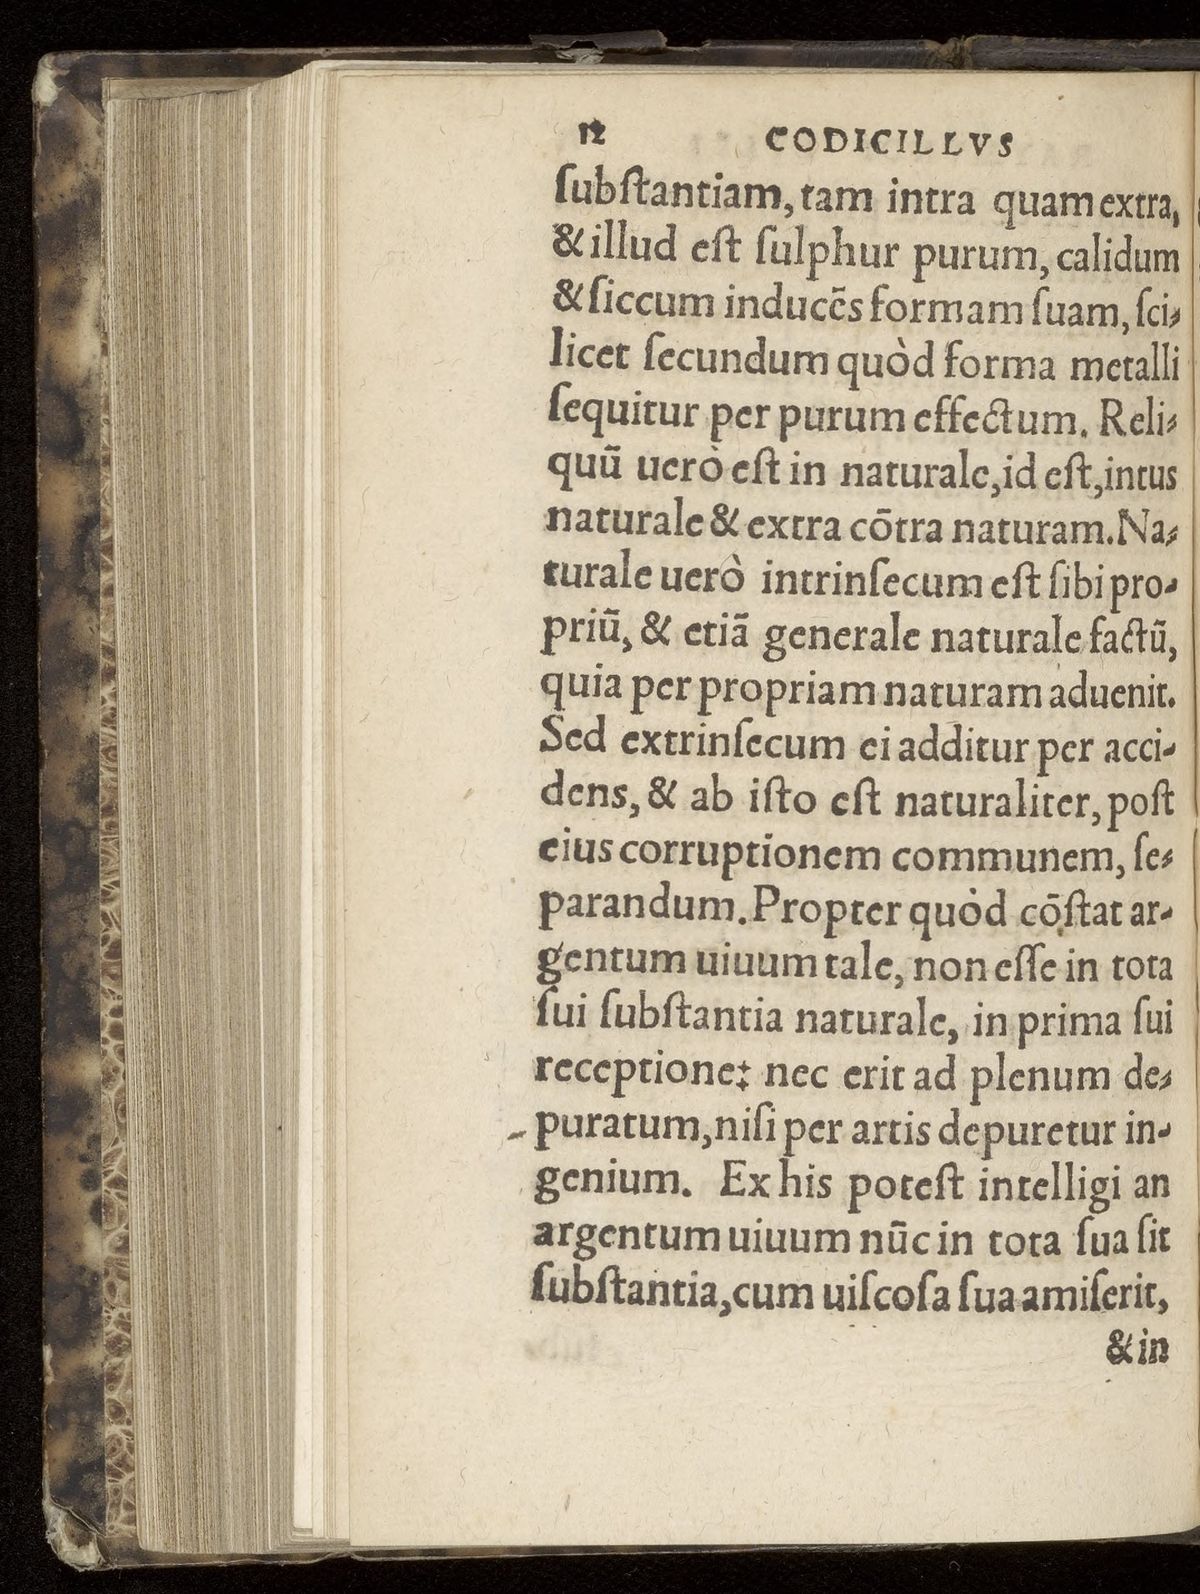 12 CODICILLVS
ſubſtantiam, tam intra quam extra,
& illud eſt ſulphur purum, calidum
& ſiccum inducẽs formam ſuam, ſci⸗
licet ſecundum quòd forma metalli
ſequitur per purum effectum. Reli⸗
quũ uerò eſt in naturale, id eſt, intus
naturale & extra cõtra naturam. Na⸗
turale uerò intrinſecum eſt ſibi pro⸗
priũ, & etiã generale naturale factũ,
quia per propriam naturam aduenit.
Sed extrinſecum ei additur per acci⸗
dens, & ab iſto eſt naturaliter, poſt
eius corruptionem communem, ſe⸗
parandum. Propter quòd cõſtat ar⸗
gentum uiuum tale, non eſſe in tota
ſui ſubſtantia naturale, in prima ſui
receptione: nec erit ad plenum de⸗
puratum, niſi per artis depuretur in⸗
genium. Ex his poteſt intelligi an
argentum uiuum nũc in tota ſua ſit
ſubſtantia, cum uiſcoſa ſua amiſerit,
& in